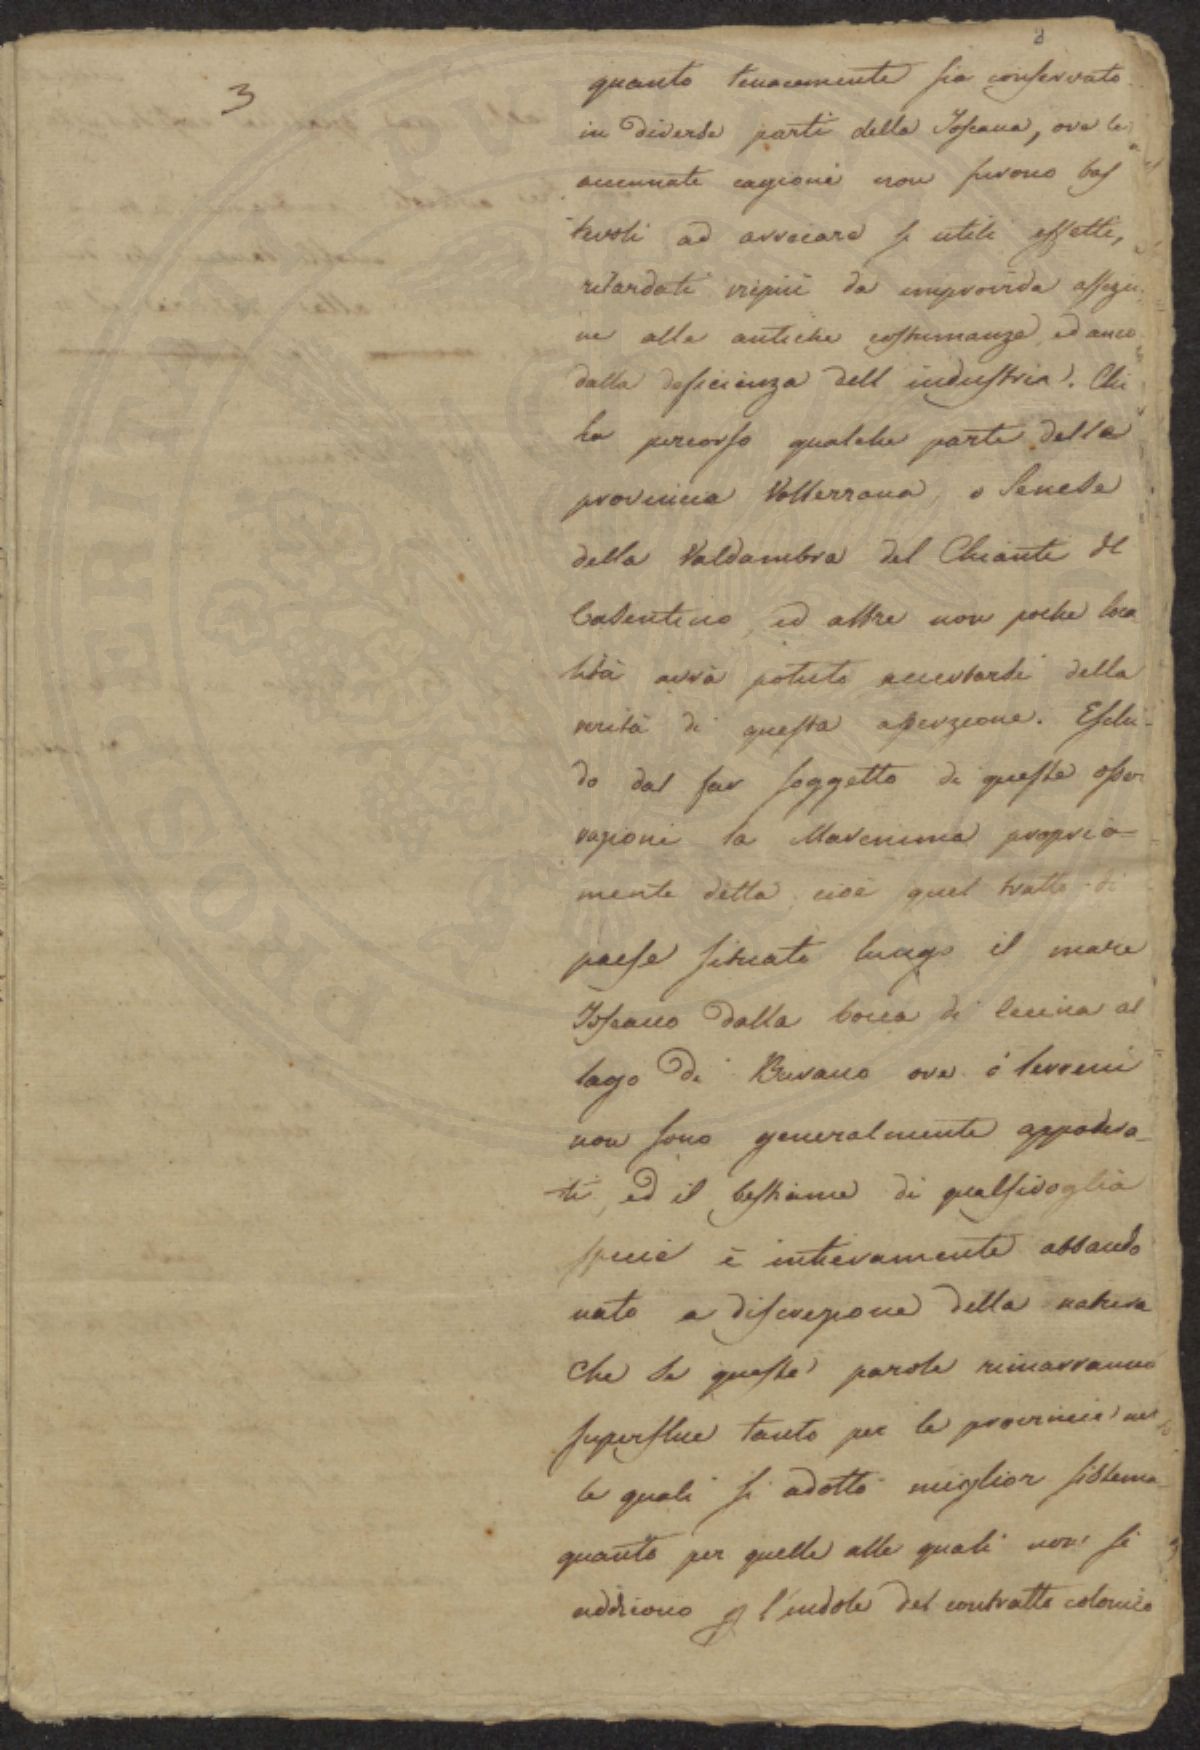 3
quanto tenacemente sia conservato
in diverse parti della Toscana, ove le
accennate cagioni non furono bas
tevoli ad arrecare si utili effetti,
ritardati vepiù da improvvida affezio
ne alle antiche costumanze, ed anco
dalla deficienza dell industria. Chi
ha percorso qualche parte della
provincia Volterrana, o Senese
della Valdambra del Chianti del
Casentino, ed altre non poche loca
lità avrà potuto accertarsi della
verità di questa asserzione. Esclu-
do dal far soggetto di queste osser
vazioni la Maremma propria-
mente detta, cioè quel tratto di
paese situato lungo il mare
Toscano dalla bocca di Cecina al
lago di Burano ove i terreni
non sono generalmente appodera-
ti, ed il bestiame di qualsivoglia
specie è intieramente abbando
nato a discrezione della natura
Che se queste parole rimarranno
superflue tanto per le provincie nel
le quali si adottò miglior sistema
quanto per quelle alle quali non si
addicono p l'indole del contratto colonico